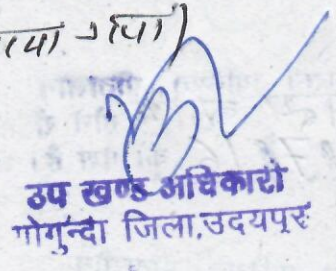 गया)
उप खण्ड अधिकारी
गोगुन्दा जिला,उदयपुर